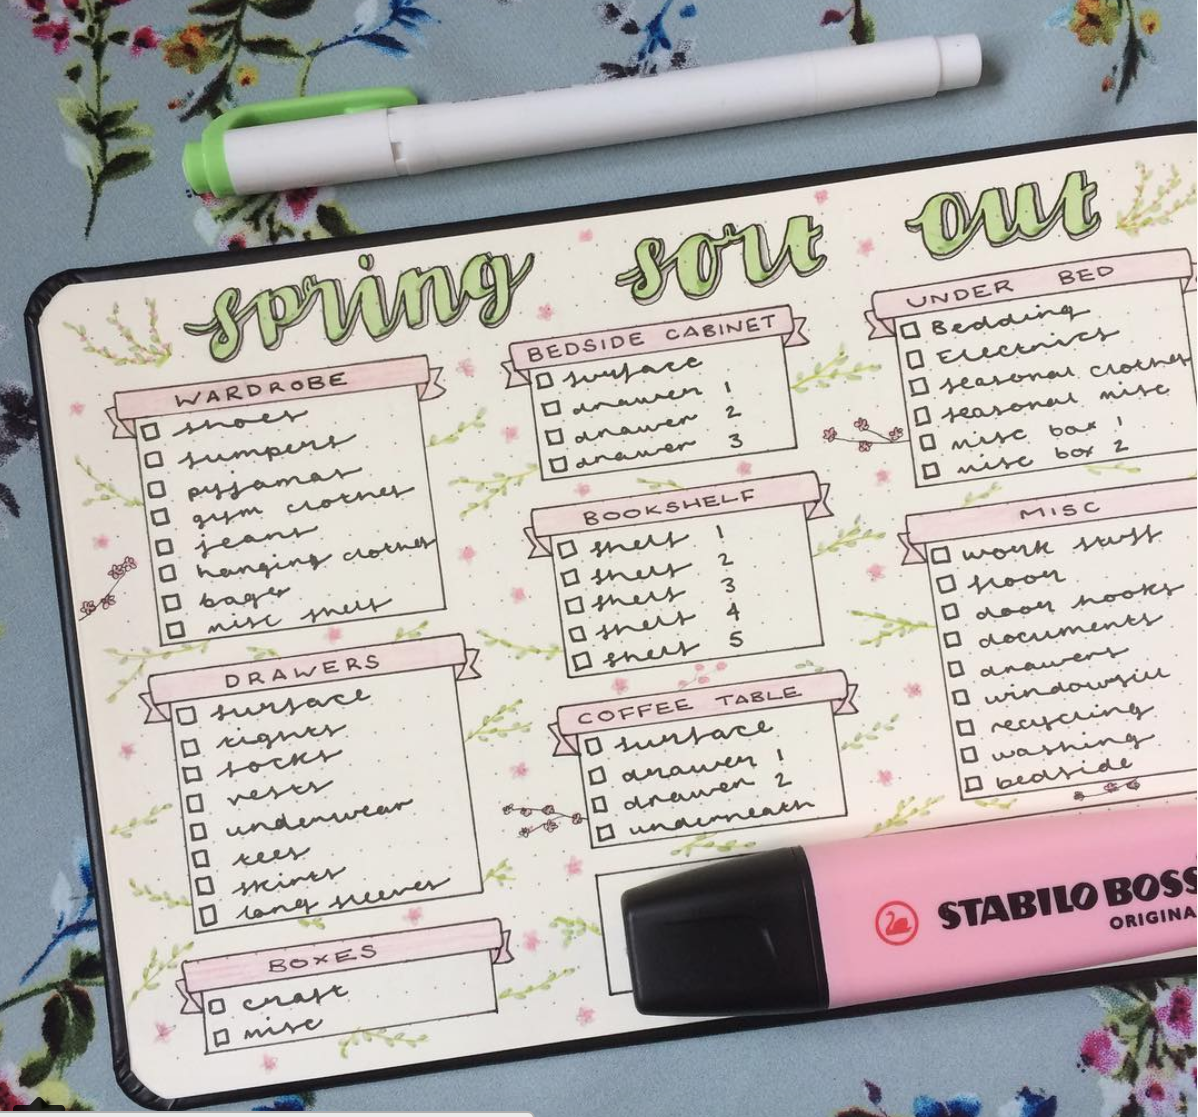 spring sort out
WARDROBE
shoes
jumpers
pyjamas
gym clothes
jeans
hanging clothes
bags
misc shelf
DRAWERS
surface
tights
socks
vests
underwear
tees
skirts
long sleeves
BOXES
craft
misc
BEDSIDE CABINET
surface
drawer 1
drawer 2
drawer 3
BOOKSHELF
shelf 1
shelf 2
shelf 3
shelf 4
shelf 5
COFFEE TABLE
surface
drawer 1
drawer 2
underneath
UNDER BED
Bedding
Electrics
seasonal clothes
seasonal misc
misc box 1
misc box 2
MISC
work stuff
floor
door hooks
documents
drawers
windowsill
recycling
washing
bedside
STABILO BOSS
ORIGINA